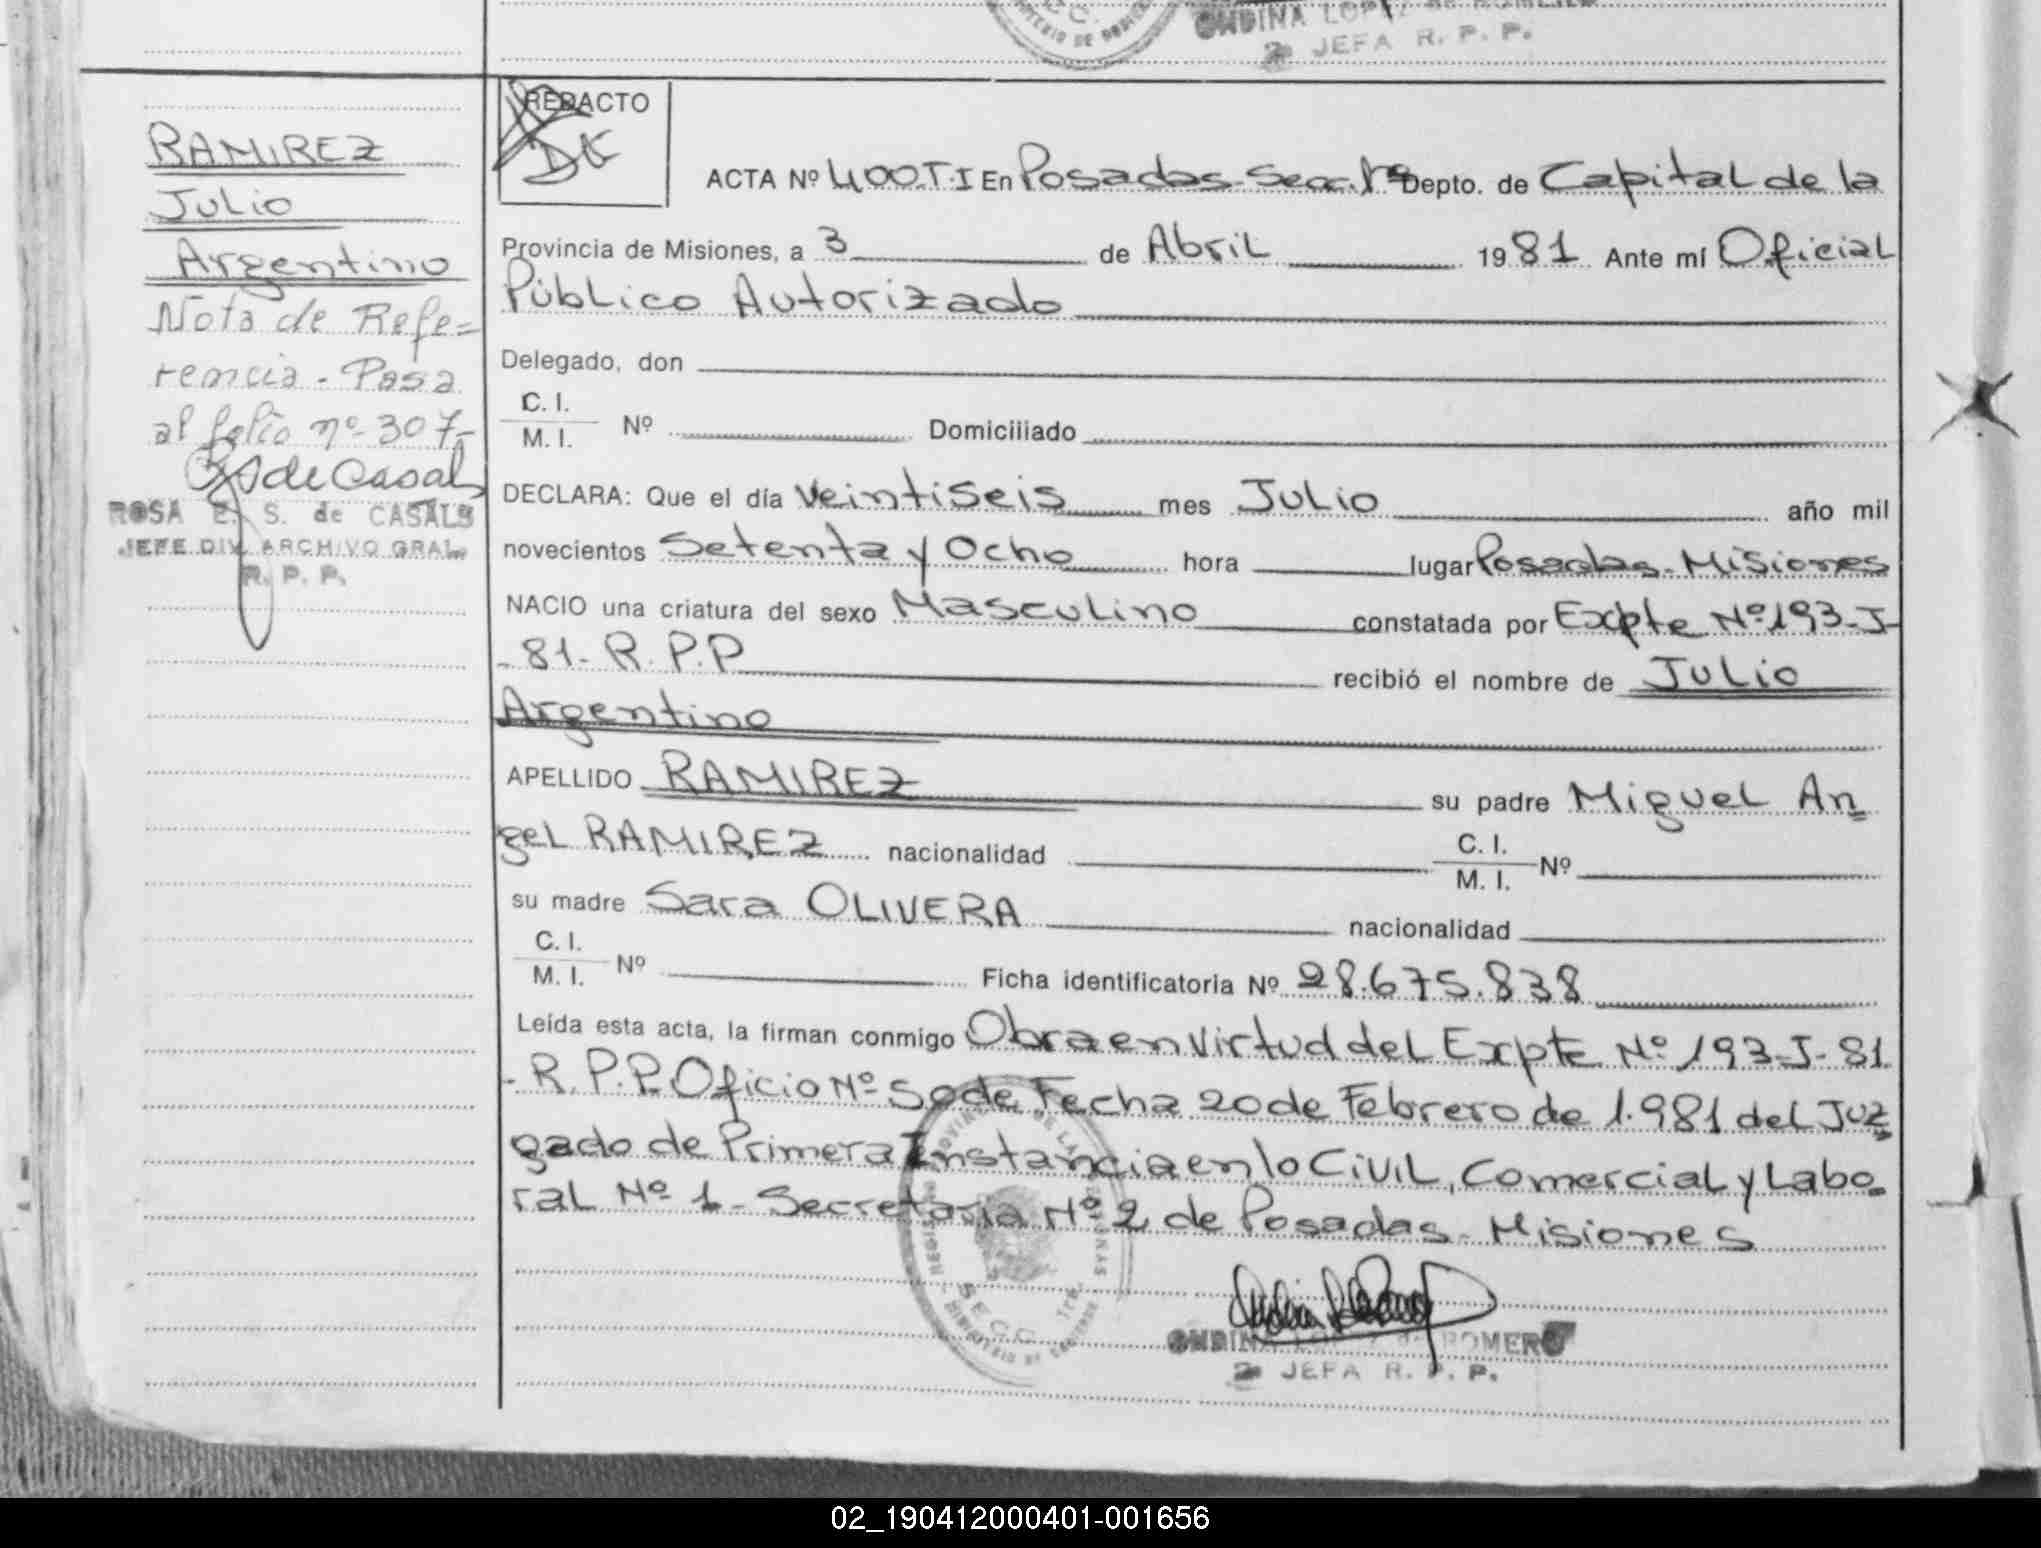 ONDINA LOPEZ de ROMERO
2º JEFA R. P. P.
RAMIREZ
Julio
Argentino
Nota de Refe=
rencia - Pasa
al folio nº 307-
de Casals
ROSA E. S. de CASALS
JEFE DIV. ARCHIVO GRAL.
R. P. P.
REDACTO
ACTA Nº 400.T.I En Posadas-Secc.1ª Depto. de Capital de la
Provincia de Misiones, a 3 de Abril 1981 Ante mí Oficial
Público Autorizado
Delegado, don
C. I.
M. I. Nº Domiciliado
DECLARA: Que el día Veintiseis mes Julio año mil
novecientos Setenta y Ocho hora lugar Posadas-Misiones
NACIO una criatura del sexo Masculino constatada por Expte Nº 193-J-
-81-R.P.P recibió el nombre de Julio
Argentino
APELLIDO RAMIREZ su padre Miguel An
gel RAMIREZ nacionalidad C. I. M. I. Nº
su madre Sara OLIVERA nacionalidad
C. I.
M. I. Nº Ficha identificatoria Nº 28.675.838
Leída esta acta, la firman conmigo Obra en Virtud del Expte Nº 193-J-81
-R.P.P. Oficio Nº 50 de Fecha 20 de Febrero de 1.981 del Juz
gado de Primera Instancia en lo Civil, Comercial y Labo
ral Nº 1 - Secretaria Nº 2 de Posadas - Misiones
ONDINA LOPEZ de ROMERO
2º JEFA R. P. P.
02_190412000401-001656